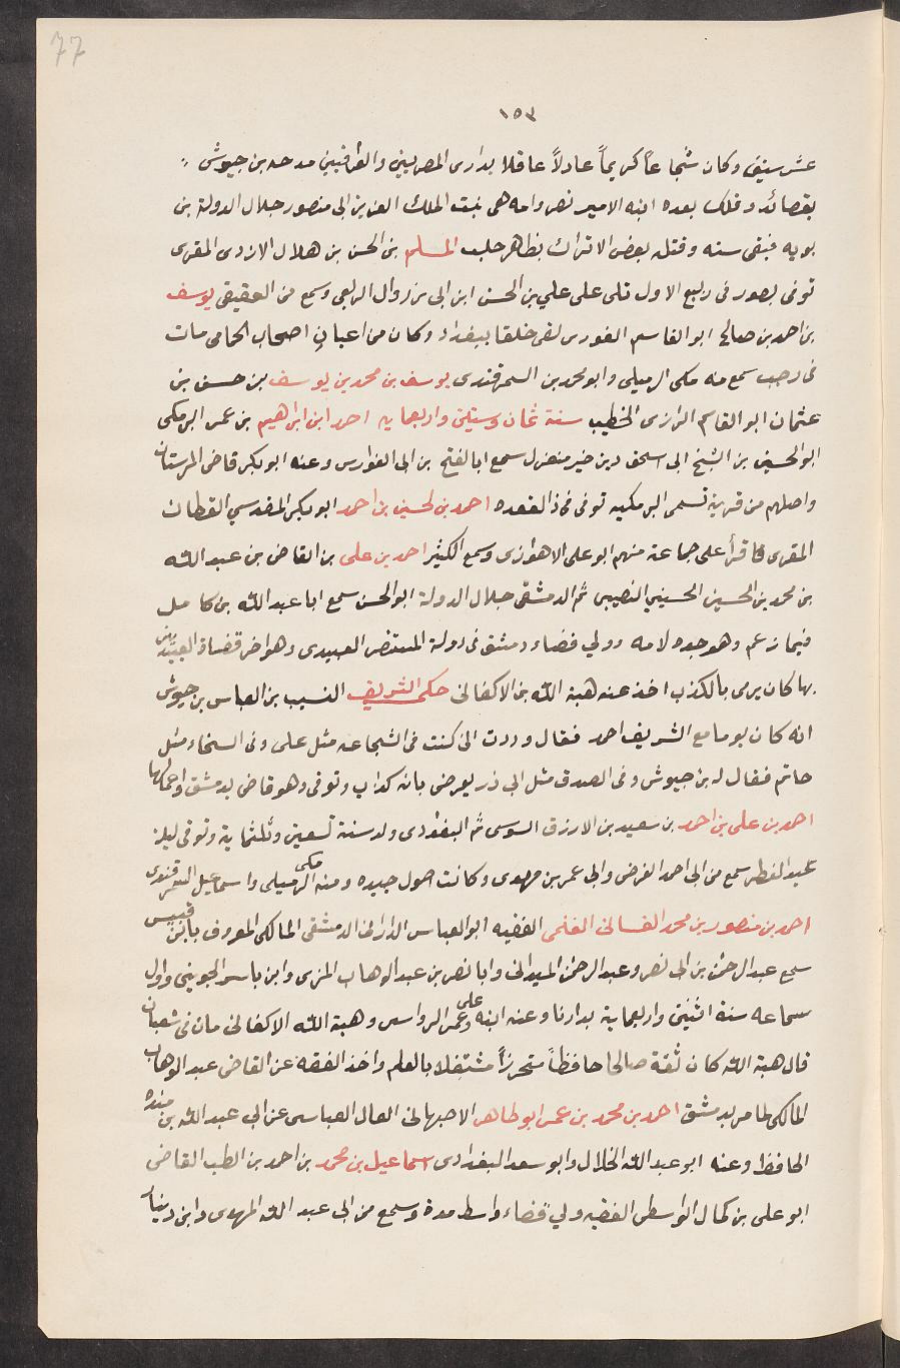 77
١٥٣
عشر سنين وكان شجاعاً كريماً عادلاً عاقلا يدارى المصريين والعراقيين مدحه بن جيوش
بقصائد وملك بعده ابنه الامير نصر وامه هى بنت الملك العزيز ابى منصور جلال الدولة بن
بويه فبقى سنه وقتله بعض الاتراك بظاهر حلب المسلم بن الحسن بن هلال الازدى المقرى
توفى بصور فى ربيع الاول تلى على علي بن الحسن ابن ابى زروال الربعى وسمع من العقيقى يوسف
بن احمد بن صالح ابو القاسم الغورى لقى خلقا ببغداد وكان من اعيان اصحاب الحامى مات
فى رجب سمع منه مكى الرميلى وابو محمد بن السمرقندى يوسف بن محمد بن يوسف بن حسن بن
عثمان ابو القاسم الرازى الخطيب سنة ثمان وستين واربعمايه احمد ابن ابراهيم بن عمر البرمكى
ابو الحسين بن الشيخ ابى اسحق دين خير منعزل سمع ابا الفتح بن ابى الفوارس وعنه ابو بكر قاضى المرستان
واصلهم من قرية تسمى البرمكيه توفى فى ذا القعده احمد بن الحسين بن احمد ابو بكر المقدسي القطان
المقرى قرأ على جماعة منهم ابو على الاهوازى وسمع الكثير احمد بن على بن القاضى بن عبد الله
بن محمد بن الحسين الحسيني النصيبى ثم الدمشقى جلال الدولة ابو الحسن سمع ابا عبد الله بن كامل
فيما زعم وهو جده لامه وولي قضاء دمشق فى دولة المستنصر العبيدى وهو اخر قضاة العبيديين
بها كان يرمى بالكذب اخذ عنه هبة الله بن الاكفانى حكى الشريف النسيب بن العباس بن جيوش
انه كان يوما مع الشريف احمد فقال وددت انى كنت فى الشجاعه مثل على وفى السخاء مثل
حاتم فقال له بن جيوش وفى الصدق مثل ابى ذر يعرض بانه كذاب وتوفى وهو قاضى بدمشق واعمالها
احمد بن على بن احمد بن سعيد بن الازرق السوسى ثم البغدادى ولد سنة تسعين وثلثماية وتوفى ليلة
عيد الفطر سمع من ابى احمد الفرضى وابى عمر بن مهدى وكانت اصوله جيده ومنه مكى الرميلى واسماعيل السمرقندى
احمد بن منصور بن محمد الغسانى الفقيه ابو العباس الدارانى الدمشقى المالكى المعروف بابن قبيس
سمع عبد الرحمن بن ابى نصر وعبد الرحمن الميدانى وابا نصر بن عبد الوهاب المزى وابن ياسر الجوينى واول
سماعه سنة اثنتين واربعماية بداريا وعنه ابنه على وعمر الرواسى وهبة الله الاكفانى مات فى شعبان
قال هبة الله كان ثقة صالحا حافظاً متحرزاً مشتغلا بالعلم واخذ الفقه عن القاضى عبد الوهاب
المالكى لما مر بدمشق احمد بن محمد بن عمر ابو طاهر الاصبهانى العباسى عن ابى عبد الله بن منده
الحافظ وعنه ابو عبد الله الخلال وابو سعد البغدادى اسماعيل بن محمد بن احمد بن الطيب القاضى
ابو على بن كمال الواسطى الفقيه ولي قضاء واسط مدة وسمع من ابى عبد الله المهدى وابن دينار